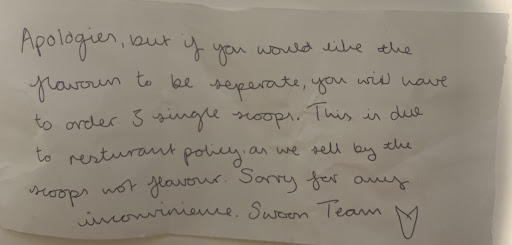 Apologies, but if you would like the
flavours to be seperate, you will have
to order 3 single scoops. This is due
to resturant policy, as we sell by the
scoops not flavour. Sorry for any
inconvinience. Swoon Team